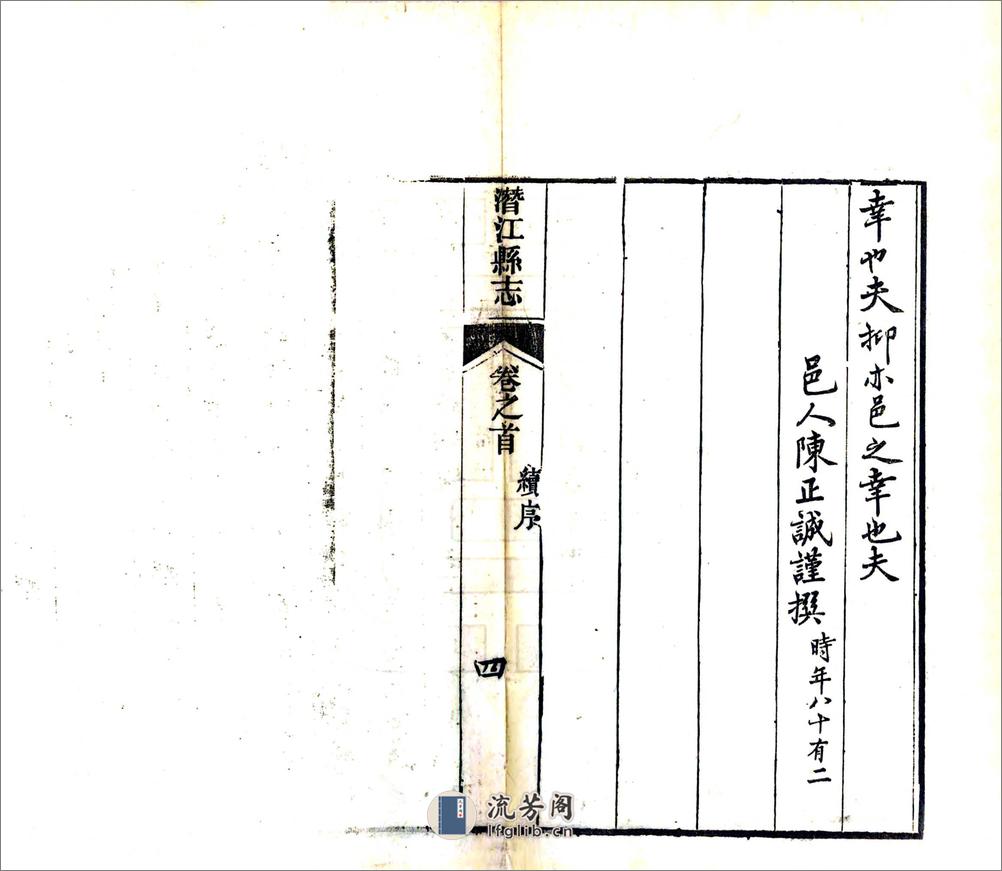 幸也夫抑亦邑之幸也夫
邑人陳正誠謹撰時年八十有二
潛江縣志
卷之首
續序
四
流芳阁
lfglib.cn